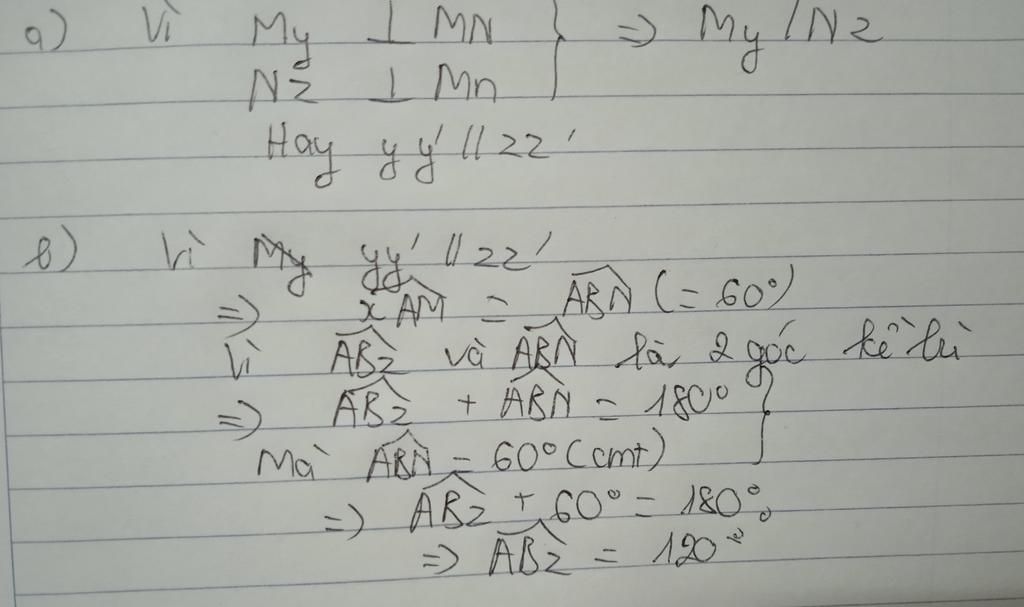 a) Vì My ⊥ MN } => My // Nz
Nz ⊥ Mn
Hay yy' // zz'
b) Vì yy' // zz'
=> xAM = ABN (= 60°)
Vì ABz và ABN là 2 góc kề bù
=> ABz + ABN = 180° }
Mà ABN = 60° (cmt)
=> ABz + 60° = 180°
=> ABz = 120°